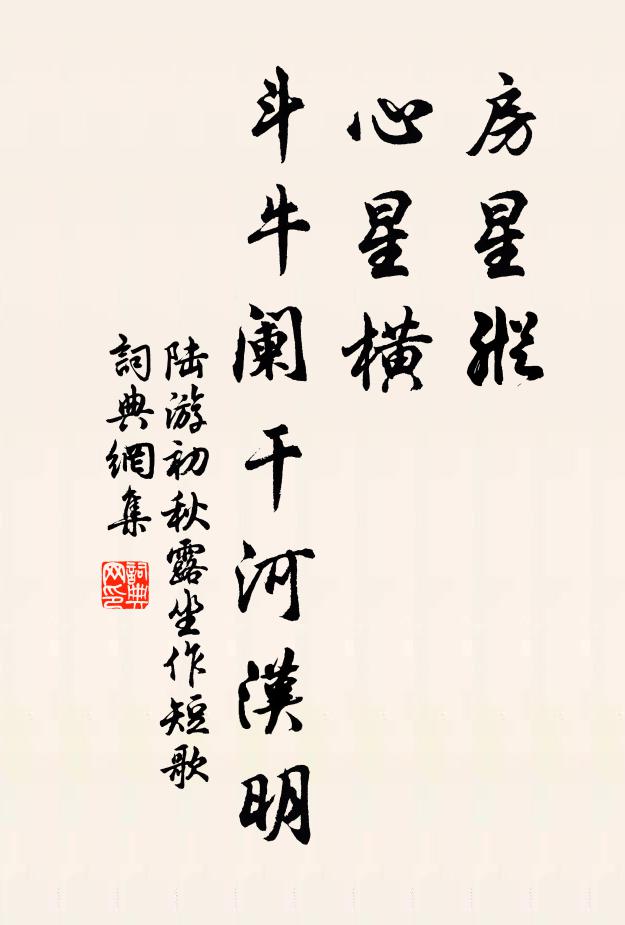 房星縱
心星橫
斗牛阑干河漢明
陆游初秋露坐作短歌
詞典網集
詞典网印